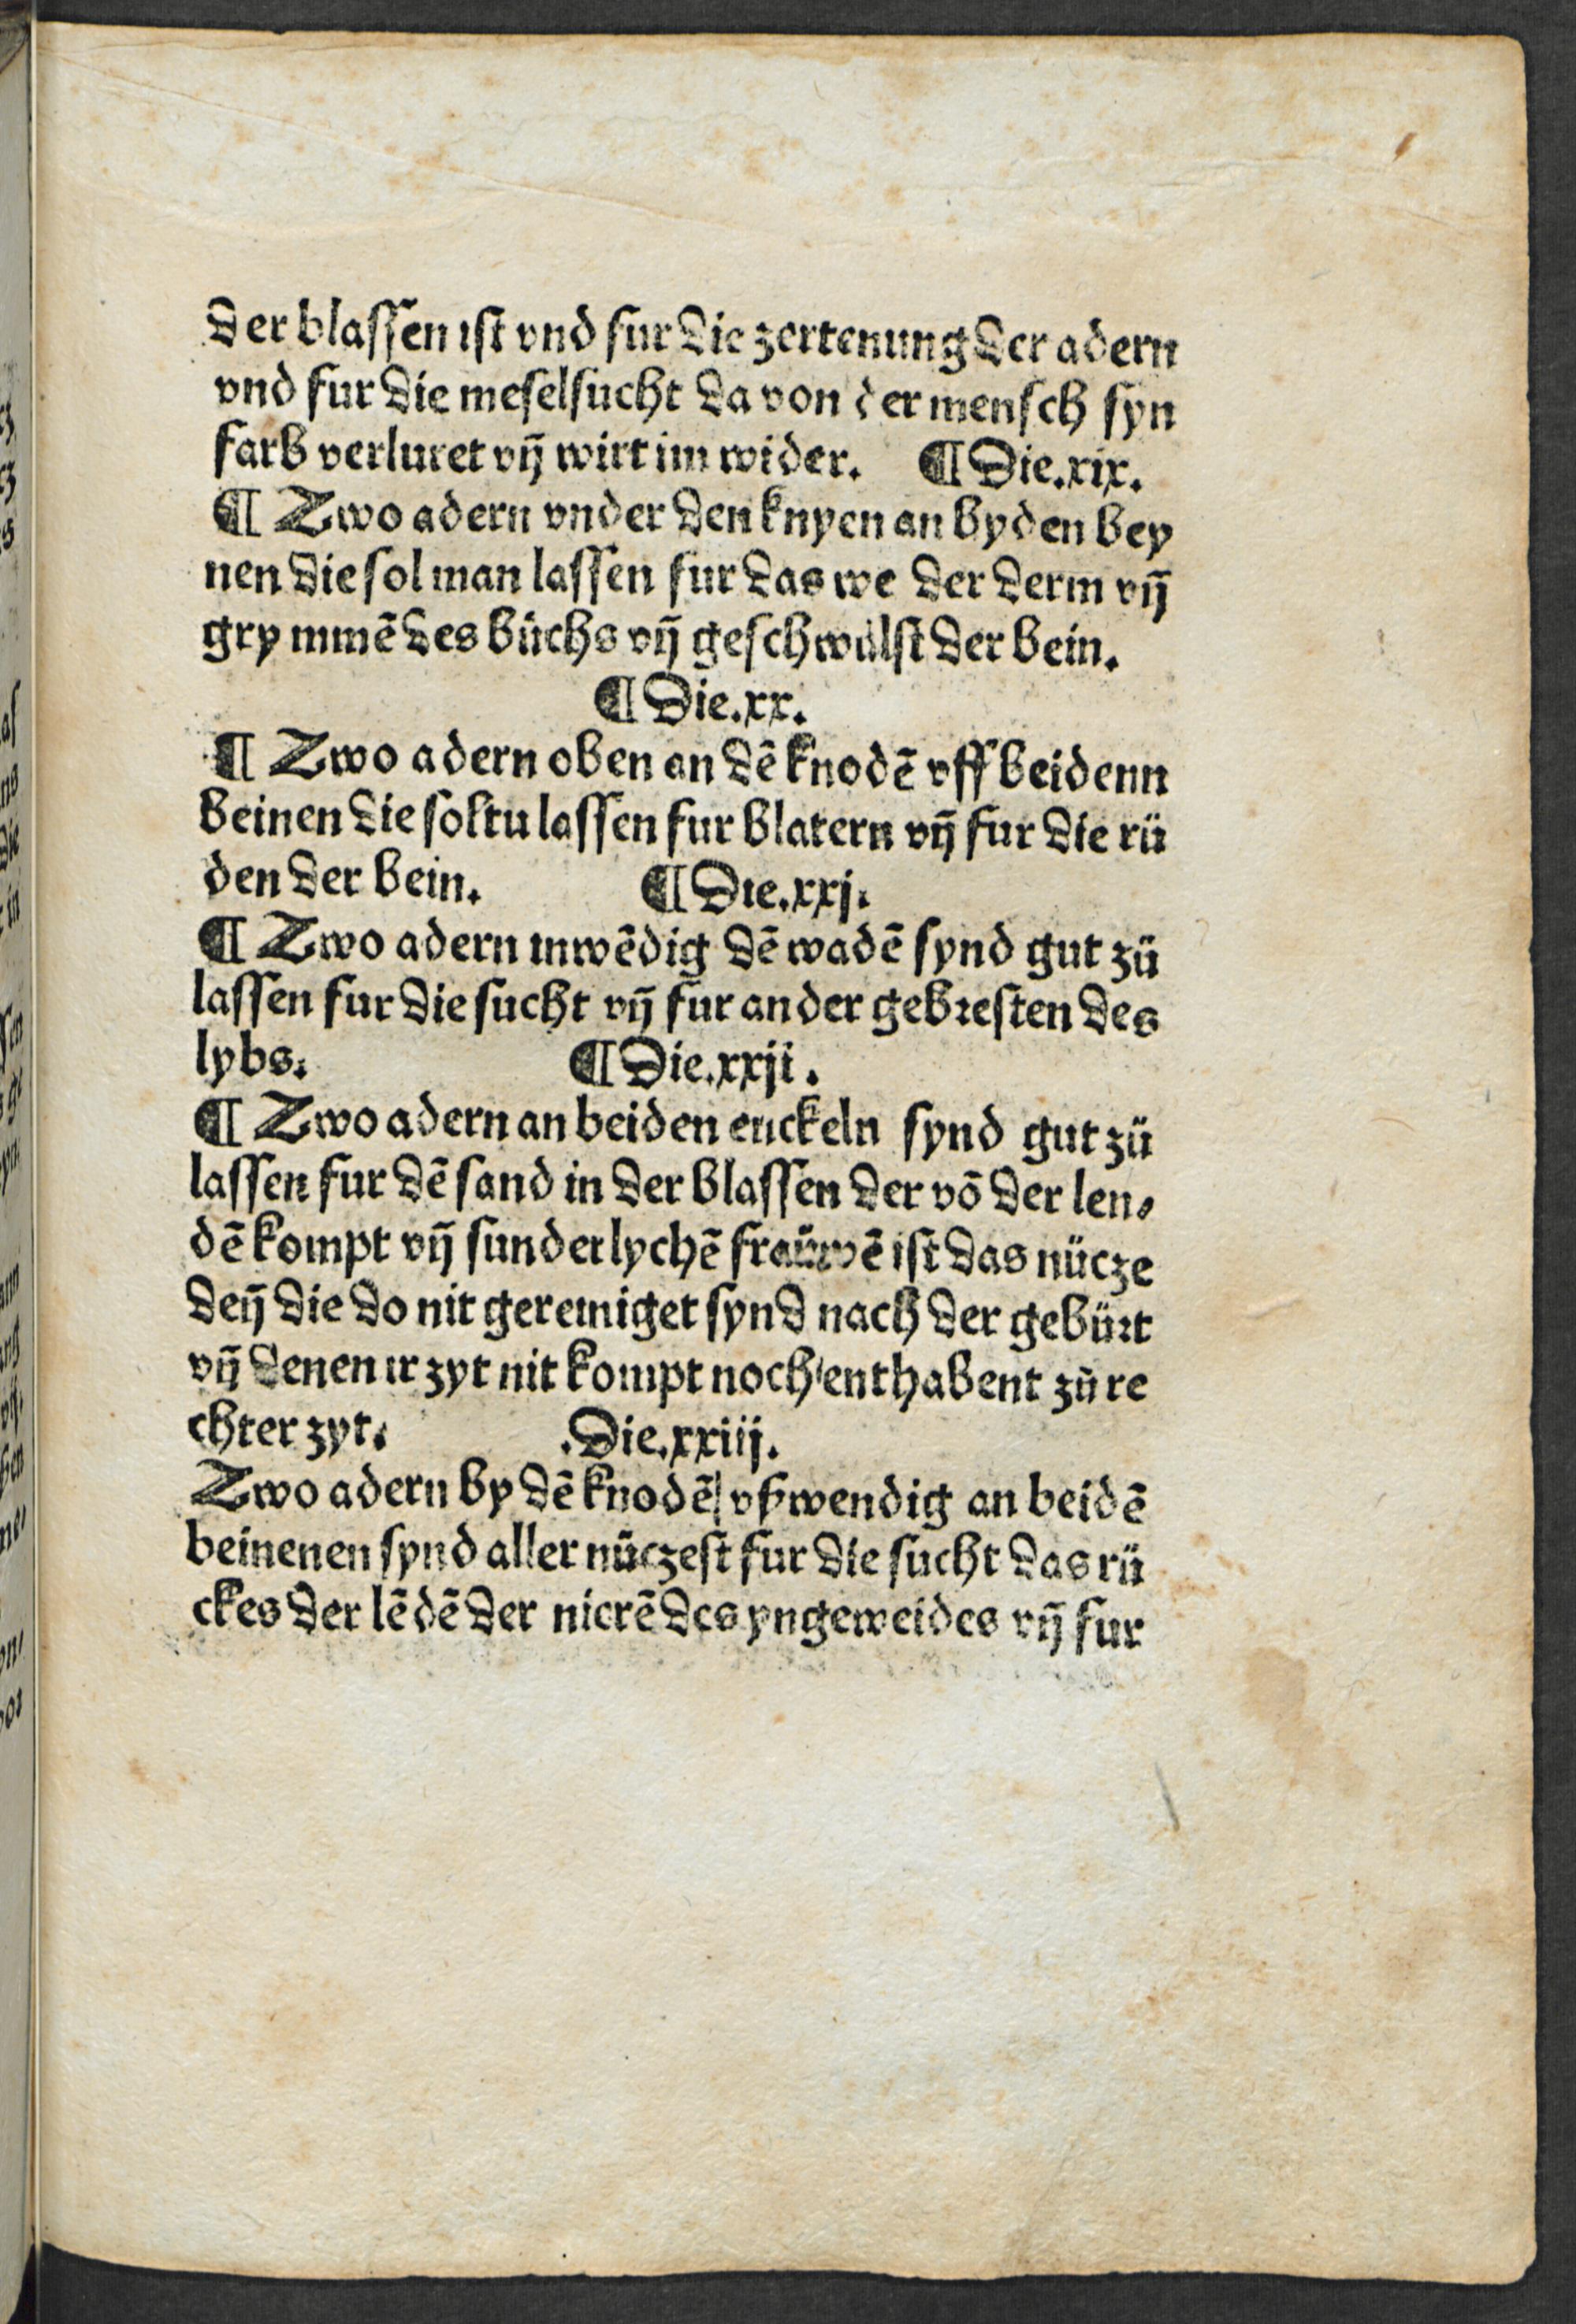 der blassen ist vnd fur die zertenung der adern
vnd fur die meselsucht da von der mensch syn
farb verluret vn̄ wirt im wider. ¶ Die.xix.
¶ Zwo adern vnder den knyen an byden bey
nen die sol man lassen fur das we der derm vn̄
grymmē des büchs vn̄ geschwülst der bein.
¶ Die.xx.
¶ Zwo adern oben an dē knodē vff beidenn
beinen die soltu lassen fur blatern vn̄ fur die rü
den der bein. ¶ Die.xxj.
¶ Zwo adern inwēdig dē wadē synd gut zü
lassen fur die sucht vn̄ fur ander gebresten des
lybs. ¶ Die.xxji.
¶ Zwo adern an beiden enckeln synd gut zü
lassen fur dē sand in der blassen der vō der len⸗
dē kompt vn̄ sunderlychē fraüwē ist das nücze
den̄ die do nit gereiniget synd nach der gebürt
vn̄ denen ir zyt nit kompt noch enthabent zü re
chter zyt. .Die.xxiij.
Zwo adern by dē knodē vßwendig an beidē
beinenen synd aller nüczest fur die sucht das rü
ckes der lēdē der nierē des yngeweides vn̄ fur